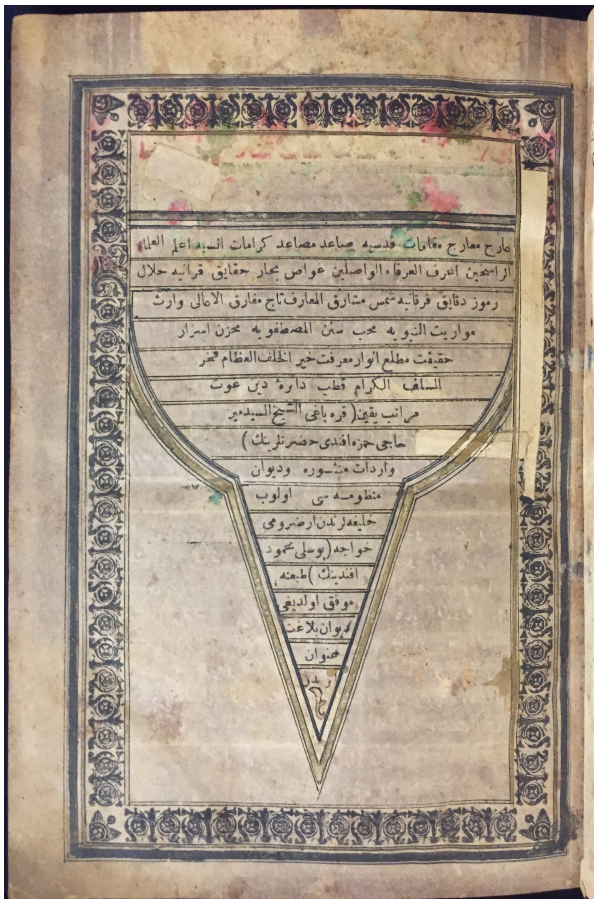 مارج معارج مقامات قدسیه صاعد مصاعد کرامات انسیه اعلم العلما
الراسخین اعرف العرفاء الواصلین غواص بحار حقایق قرانیه حلال
رموز دقایق فرقانیه شمس مشارق المعارف تاج مفارق الاهالی وارث
مواریث النبویه محب سنن المصطفویه مخزن اسرار
حقیقت مطلع انوار معرفت خیر الخلف العظام فخر
السلف الکرام قطب دایرهٔ دین غوث
مراتب یقین (قره باغی الشیخ السید میر
حاجی حمزه افندی حضرتلرینك)
واردات منثوره ودیوان
منظومه سی اولوب
خلیفه لرندن ارضرومی
خواجه (یوسلی محمود
افندینك) طبعنه
موفق اولدیغی
دیوان بلاغت
عنوان